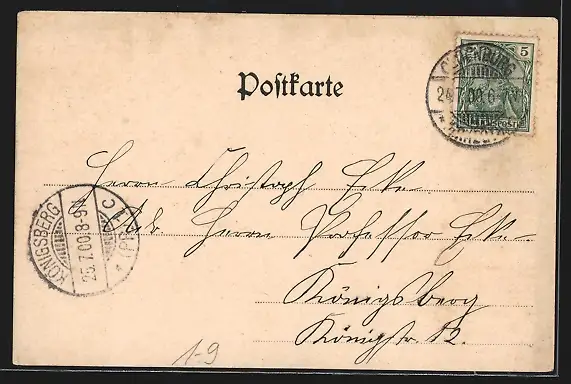 5
OLDENBURG
24.7.00.6-7N.
Postkarte
Herrn Christoph Ecke
Adr Herrn Professor Ecke.
KÖNIGSBERG
25.7.00.8-9N.
C
(PR.)
Königsberg
Königstr. 12.
1-9